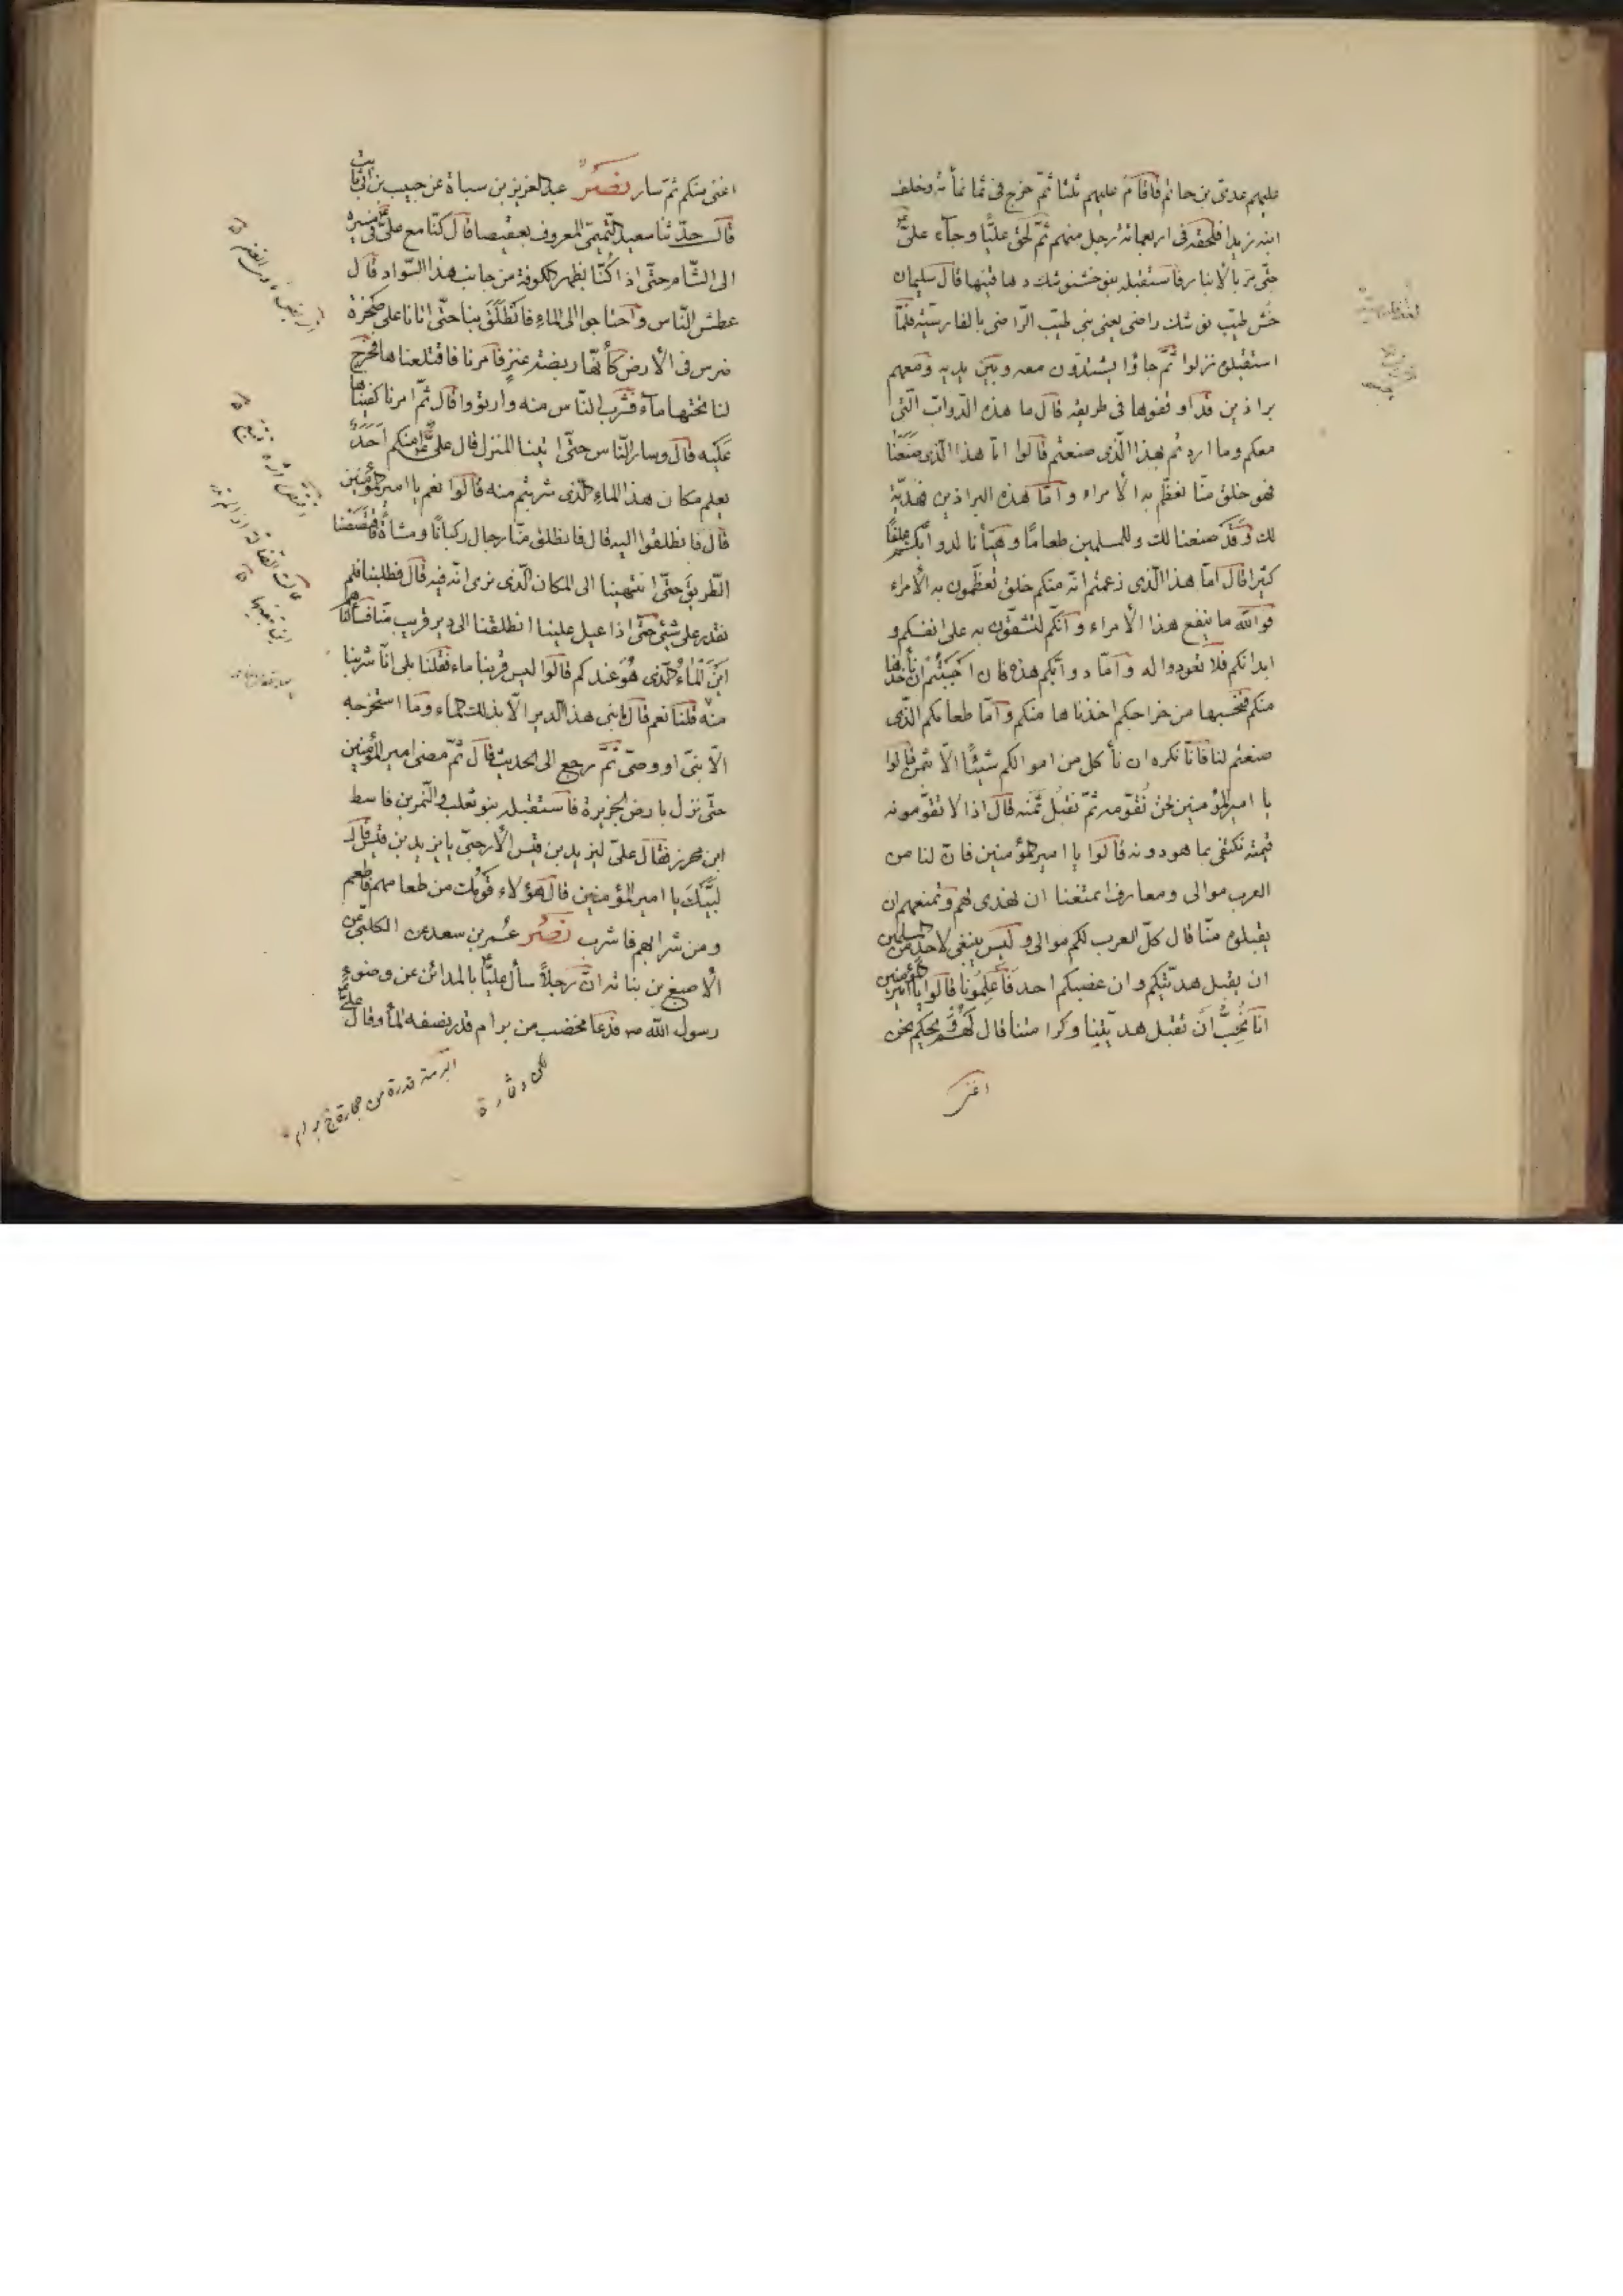 عليهم عدىّ بن حاتم فاقام عليهم ثلثا ثمّ خرج فى ثمانمأئة وخلف
ابنه زيدا فلحقه فى اربعمائة رجل منهم ثمّ لحق عليّا وجآء علىّ
حتّى مرّ بالانبار فاستقبله بنو خشنوشك دهاقينها قال سليمان
خُش طيّب نوشك راضى يعنى بنى طيّب الرّاضى بالفارسيّة فلمّا
استقبلوه نزلوا ثمّ جاؤا يشتدّون معه وبين يديه ومعهم
براذين قد اوقفوها فى طريقه قال ما هذه الدّوابّ الّتى
معكم وما اردتم بهذا الّذى صنعتم قالوا امّا هذا الّذى صنعنا
فهو خلق منّا نعظّم به الأمراء وامّا هذه البراذين فهديّة
لك وقد صنعنا لك وللمسلمين طعامًا وهيّأنا لدوابّكم علفًا
كثيرا قال امّا هذا الّذى زعمتم انّه منكم خلق تعظّمون به الأمراء
فوالله ما ينفع هذا الأمراء وانّكم لتشقّون به على انفسكم و
ابدانكم فلا تعودوا له وامّا دوابّكم هذه فان احببتم ان نأخذها
منكم فنحسبها من خراجكم اخذناها منكم وامّا طعامكم الّذى
صنعتم لنا فانّا نكره ان نأكل من اموالكم شيئًا الّا بثمن قالوا
يا امير المؤمنين نحن نُقوّمه ثمّ نقبل ثمنه قال اذا لا تقوّمونه
قيمته نكتفى بما هو دونه قالوا يا امير المؤمنين فانّ لنا من
العرب موالى ومعارف اتمنعنا ان نهدى لهم وتمنعهم ان
يقبلوه منّا قال كلّ العرب لكم موالى وليس ينبغى لاحد من المسلمين
ان يقبل هديّتكم وان غصبكم احد فاَعلِمُونا قالوا يا امير المؤمنين
انّا نُحِبُّ ان تقبل هديّتنا وكرامتنا قال لهم ويحكم نحن
اغنى
اغنى منكم ثمّ سار نصر عبد العزيز بن سباة عن حبيب بن ابى ثابت
قال حدّثنا سعيد التّيمىّ المعروف بعقيصا قال كنّا مع علىّ فى مسيره
الى الشّام حتّى اذا كُنّا بظهر الكوفة من جانب هذا السّواد قال
عطش النّاس واحتاجوا الى الماء فانطلق بنا حتّى اتانا على صخرة
ضرس فى الأرض كأنّها ربضة عنز فامرنا فاقتلعناها فخرج
لنا تحتها مآء فشرب النّاس منه وارتووا قال ثمّ امرنا كفيناها
عليه قال وسار النّاس حتّى اتينا المنزل قال علىّ امنكم احدٌ
يعلم مكان هذا الماء الّذى شربتم منه قالوا نعم يا امير المؤمنين
قال فانطلقوا اليه قال فانطلق منّا رجال ركبانًا ومشاةً فقصصنا
الطّريق حتّى انتهينا الى المكان الّذى نرى انّه فيه قال فطلبنا فلم
نقدر على شئ حتّى اذا عيل علينا انطلقنا الى دير قريب منّا فسألناهم
اين الماءُ الّذى هُوَ عندكم قالوا ليس قربنا ماء فقلنا بلى انّا شربنا
منه قلنا نعم قال ما بنى هذا الدير الّا بذلك الماء وما استخرجه
الّا نبىّ او وصىّ ثمّ رجع الى الحديث قال ثمّ مضى امير المؤمنين
حتّى نزل بارض الجزيرة فاستقبله بنو تغلب والنّمر بن قاسط
ابن محرز فقال علىّ ليزيد بن قيس الأرحبىّ يا يزيد بن قيس قال
لبّيك يا امير المؤمنين قال هؤلاء قومك من طعامهم فاطعم
ومن شرابهم فاشرب نصر عُمر بن سعد عن الكلبىّ عن
الأصبغ بن نباتة انّ رجلاً سأل عليّا بالمدائن عن وضوء
رسول الله ص فدعا بمخضب من برام قدر نصفه المأ وقال علىّ
البرمة قدرة من حجارة ج برام